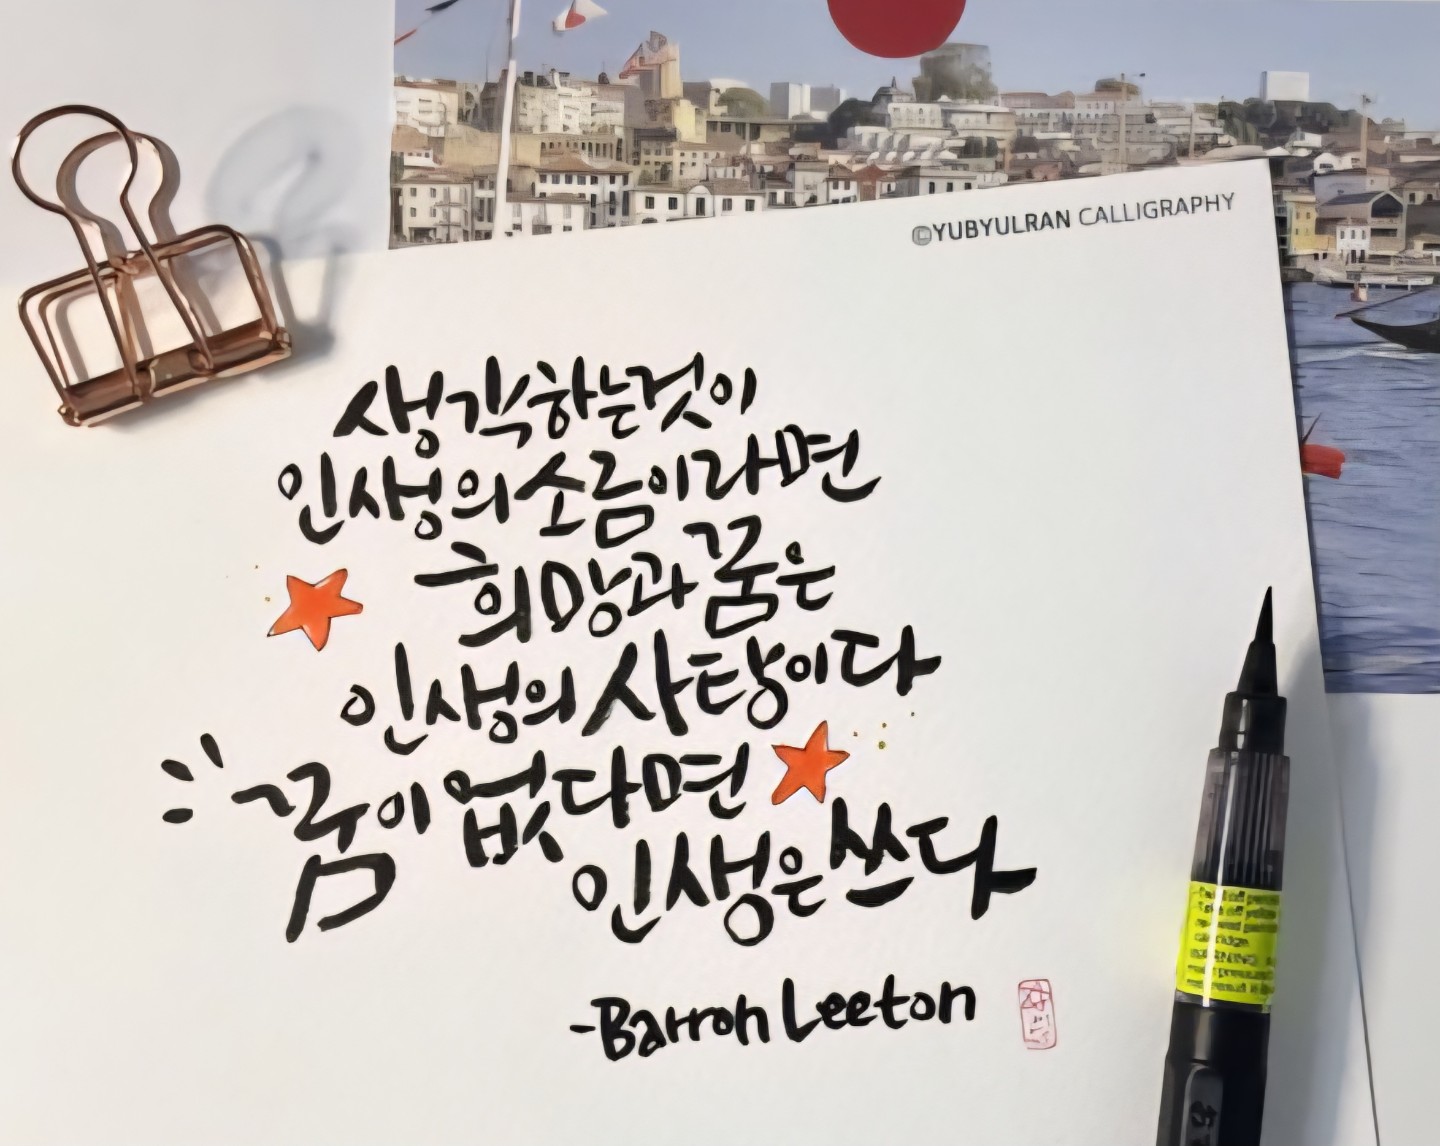 ©YUBYULRAN CALLIGRAPHY
생각하는것이
인생의 소금이라면
희망과 꿈은
인생의 사탕이다
꿈이 없다면
인생은 쓰다
-Barron Leeton